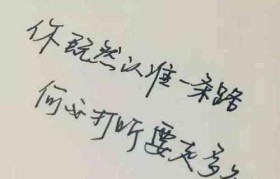 你既然认准一条路
何必打听要走多